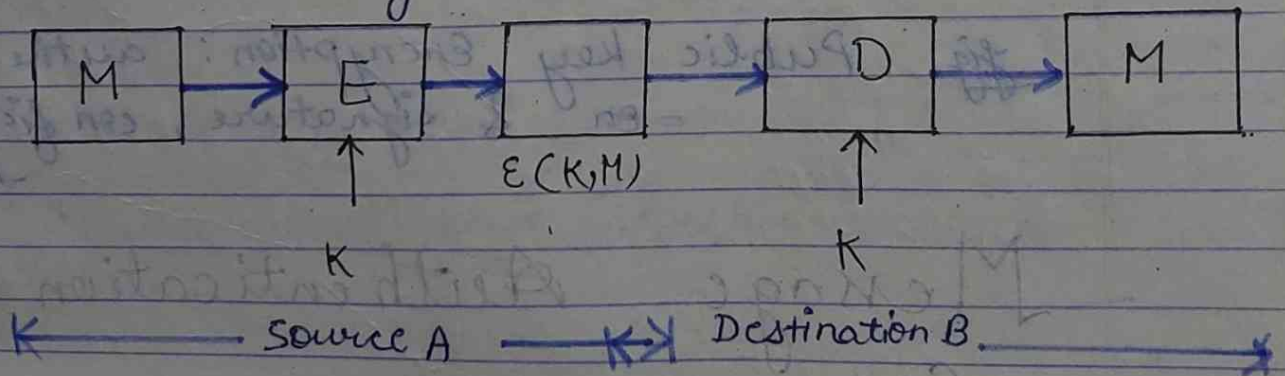 M E D M
ε(K,M)
K K
Source A Destination B.